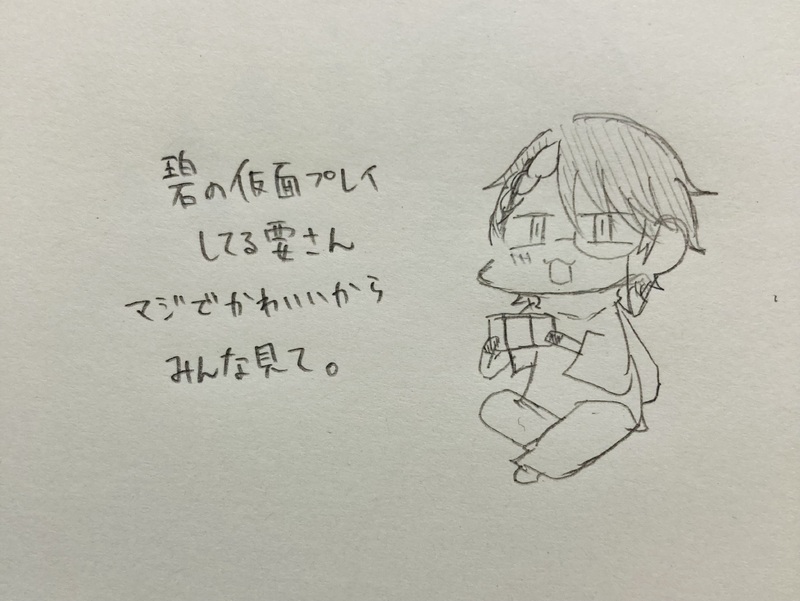 碧の仮面プレイ
してる要さん
マジでかわいいから
みんな見て。